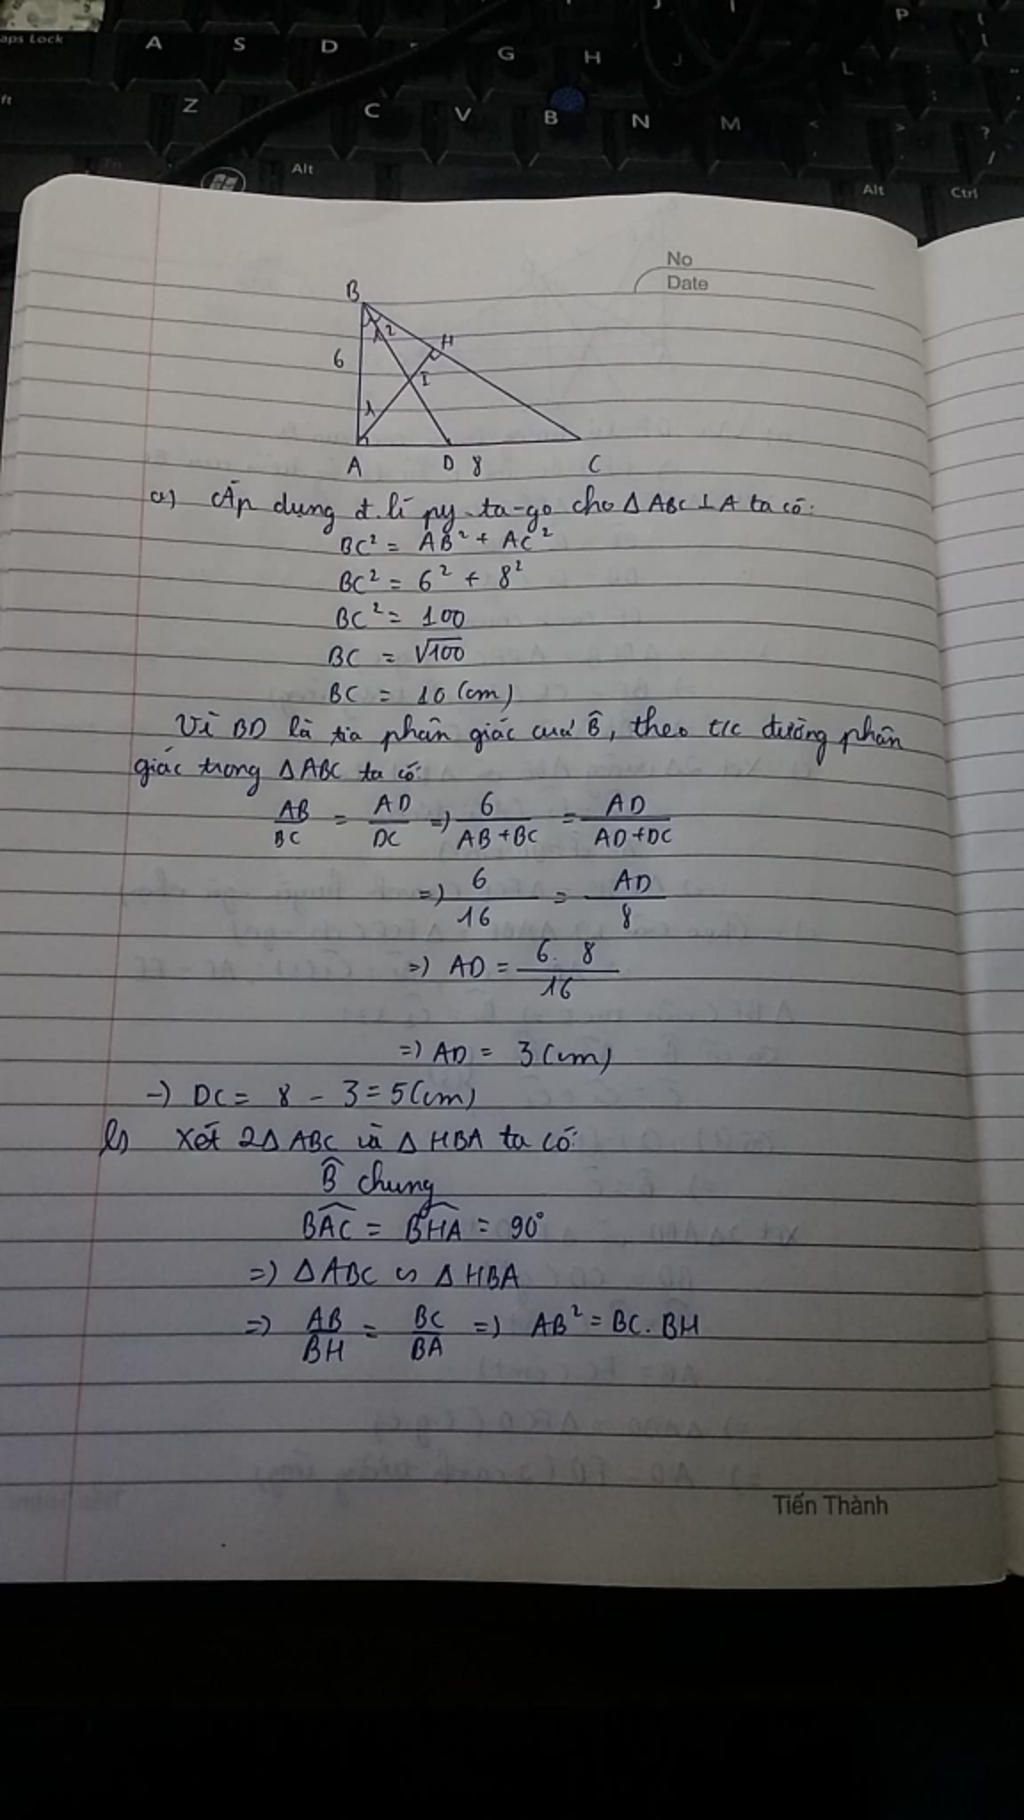 aps Lock A S D G H J L P
ft Z C V B N M < > ? /
Alt Alt Ctrl
No
Date
B
2
H
6
I
A D 8 C
a) Áp dụng đ.lí py-ta-go cho △ABC ⊥ A ta có:
BC² = AB² + AC²
BC² = 6² + 8²
BC² = 100
BC = √100
BC = 10 (cm)
Vì BD là tia phân giác của B̂, theo t/c đường phân
giác trong △ABC ta có:
AB/BC = AD/DC => 6/AB+BC = AD/AD+DC
=> 6/16 = AD/8
=> AD = 6.8/16
=> AD = 3 (cm)
-) DC = 8 - 3 = 5 (cm)
b) Xét 2△ ABC và △ HBA ta có:
B̂ chung
BAC = BHA = 90°
=> △ABC ∽ △HBA
=> AB/BH = BC/BA => AB² = BC.BH
Tiến Thành